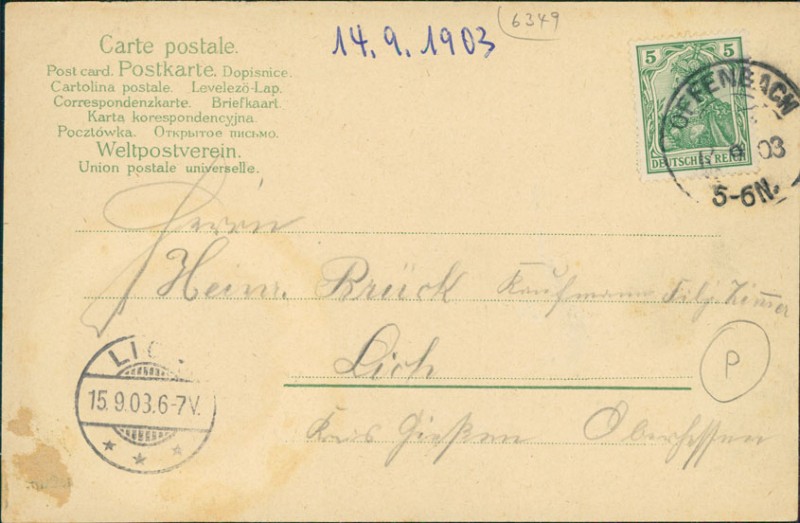 6349
14. 9. 1903
Carte postale.
Post card. Postkarte. Dopisnice.
Cartolina postale. Levelező-Lap.
Correspondenzkarte. Briefkaart.
Karta korespondencyjna.
Pocztówka. Открытое письмо.
Weltpostverein.
Union postale universelle.
5 5
DEUTSCHES REICH
OFFENBACH
9 03
5-6N.
Herrn
Heinr. Brück Kaufmann Zimmer
Lich
P
Kreis Gießen Oberhessen
LIC
15.9.03.6-7V.